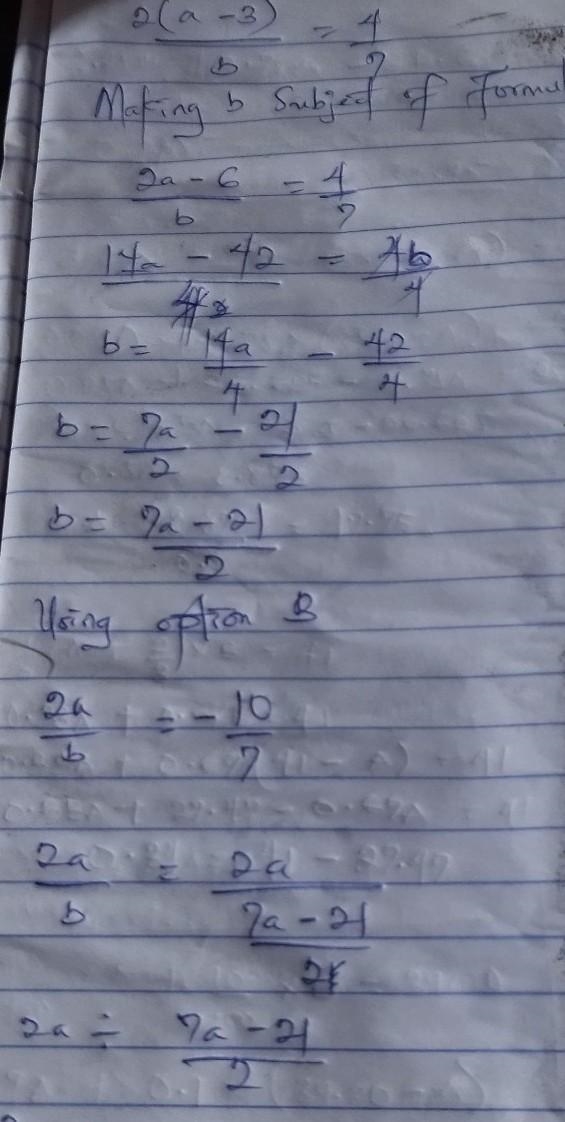 2(a - 3) / b = 4 / 7
Making b Subject of Formul
2a - 6 / b = 4 / 7
14a - 42 = 4b / 4
b = 14a / 4 - 42 / 4
b = 7a / 2 - 21 / 2
b = 7a - 21 / 2
Using option B
2a / b = - 10 / 7
2a / b = 2a / 7a - 21 / 2
2a ÷ 7a - 21 / 2